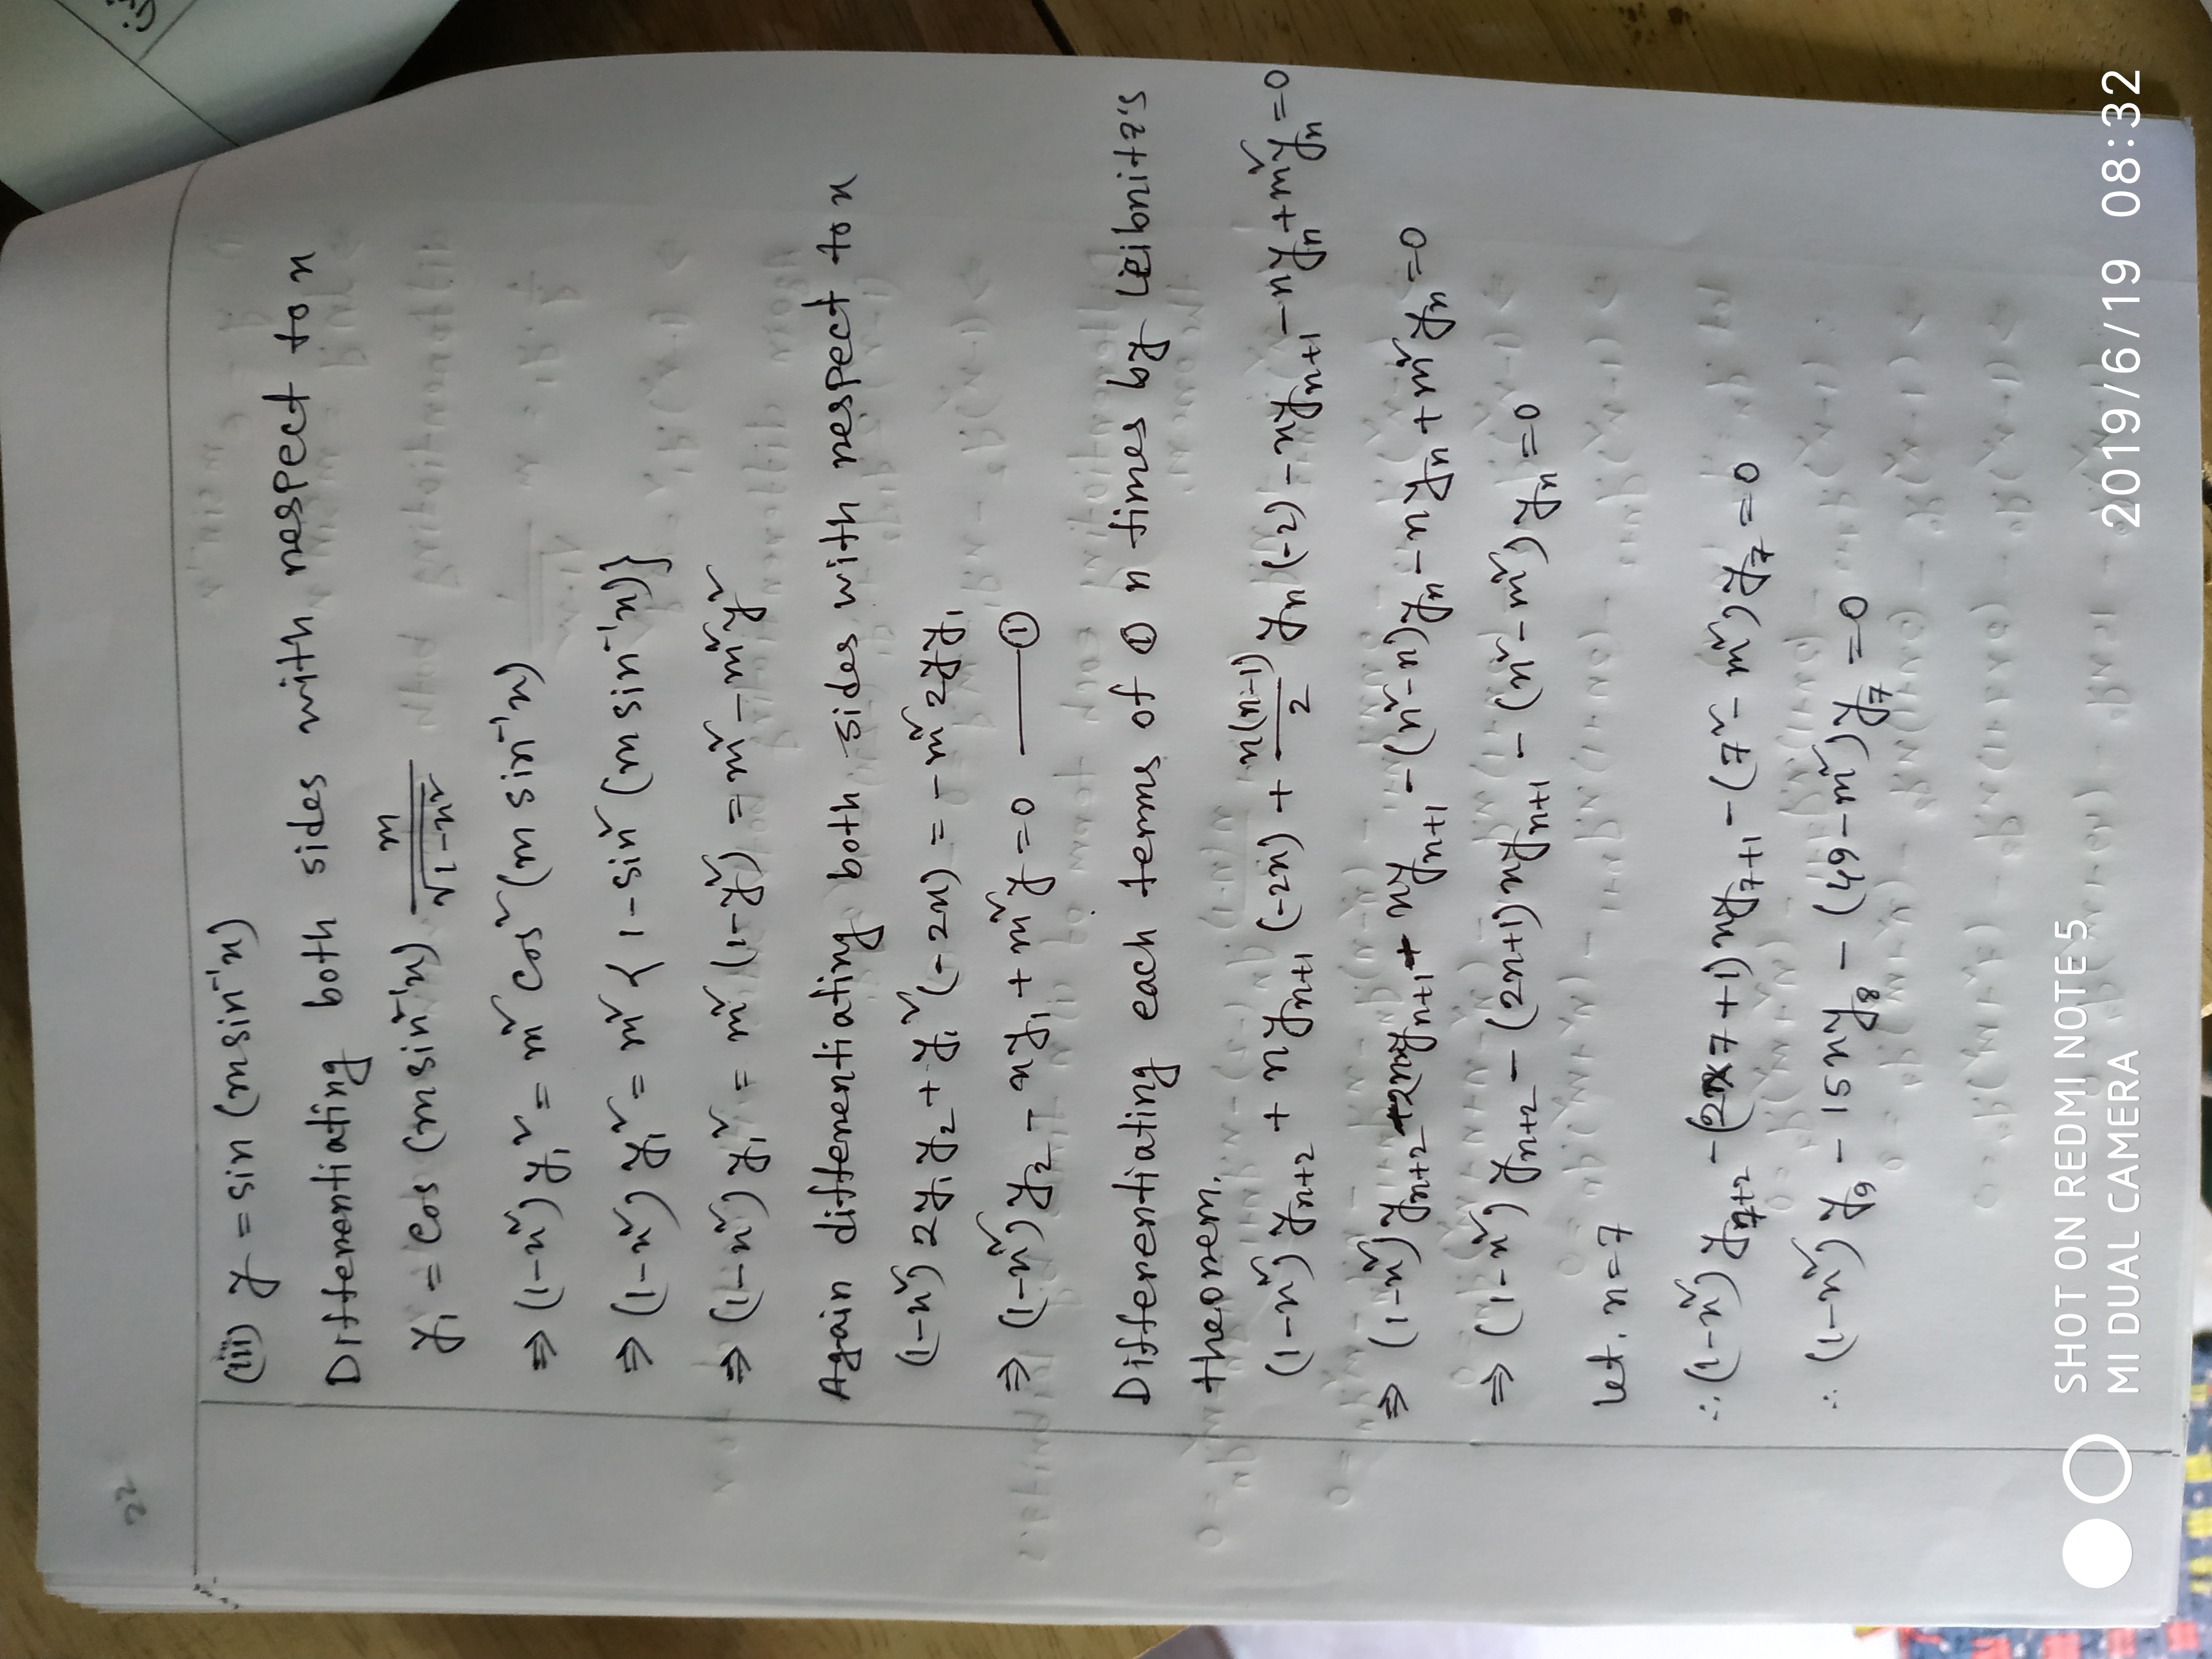 22
(iii) y = sin (m sin⁻¹x)
Differentiating both sides with respect to x
y₁ = cos (m sin⁻¹x) m/√(1-x²)
⇒ (1-x²) y₁² = m² cos² (m sin⁻¹x)
⇒ (1-x²) y₁² = m² { 1-sin² (m sin⁻¹x)}
⇒ (1-x²) y₁² = m² (1-y²) = m² - m²y²
Again differentiating both sides with respect to x
(1-x²) 2y₁y₂ + y₁² (-2x) = -m² 2yy₁
⇒ (1-x²) y₂ - xy₁ + m²y = 0 —— ①
Differentiating each terms of ① n times by Leibnitz's
theorem.
(1-x²) yₙ₊₂ + nyₙ₊₁ (-2x) + n(n-1)/2 yₙ (-2) - xyₙ₊₁ - nyₙ + m²yₙ = 0
⇒ (1-x²) yₙ₊₂ - 2nxyₙ₊₁ - xyₙ₊₁ - (n²-n)yₙ - nyₙ + m²yₙ = 0
⇒ (1-x²) yₙ₊₂ - (2n+1) xyₙ₊₁ - (n²-m²) yₙ = 0
Let. n=7
∴ (1-x²) y₇₊₂ - (2×7+1) xy₇₊₁ - (7²-m²) y₇ = 0
∴ (1-x²) y₉ - 15xy₈ - (49-m²) y₇ = 0
SHOT ON REDMI NOTE 5
MI DUAL CAMERA
2019/6/19 08:32